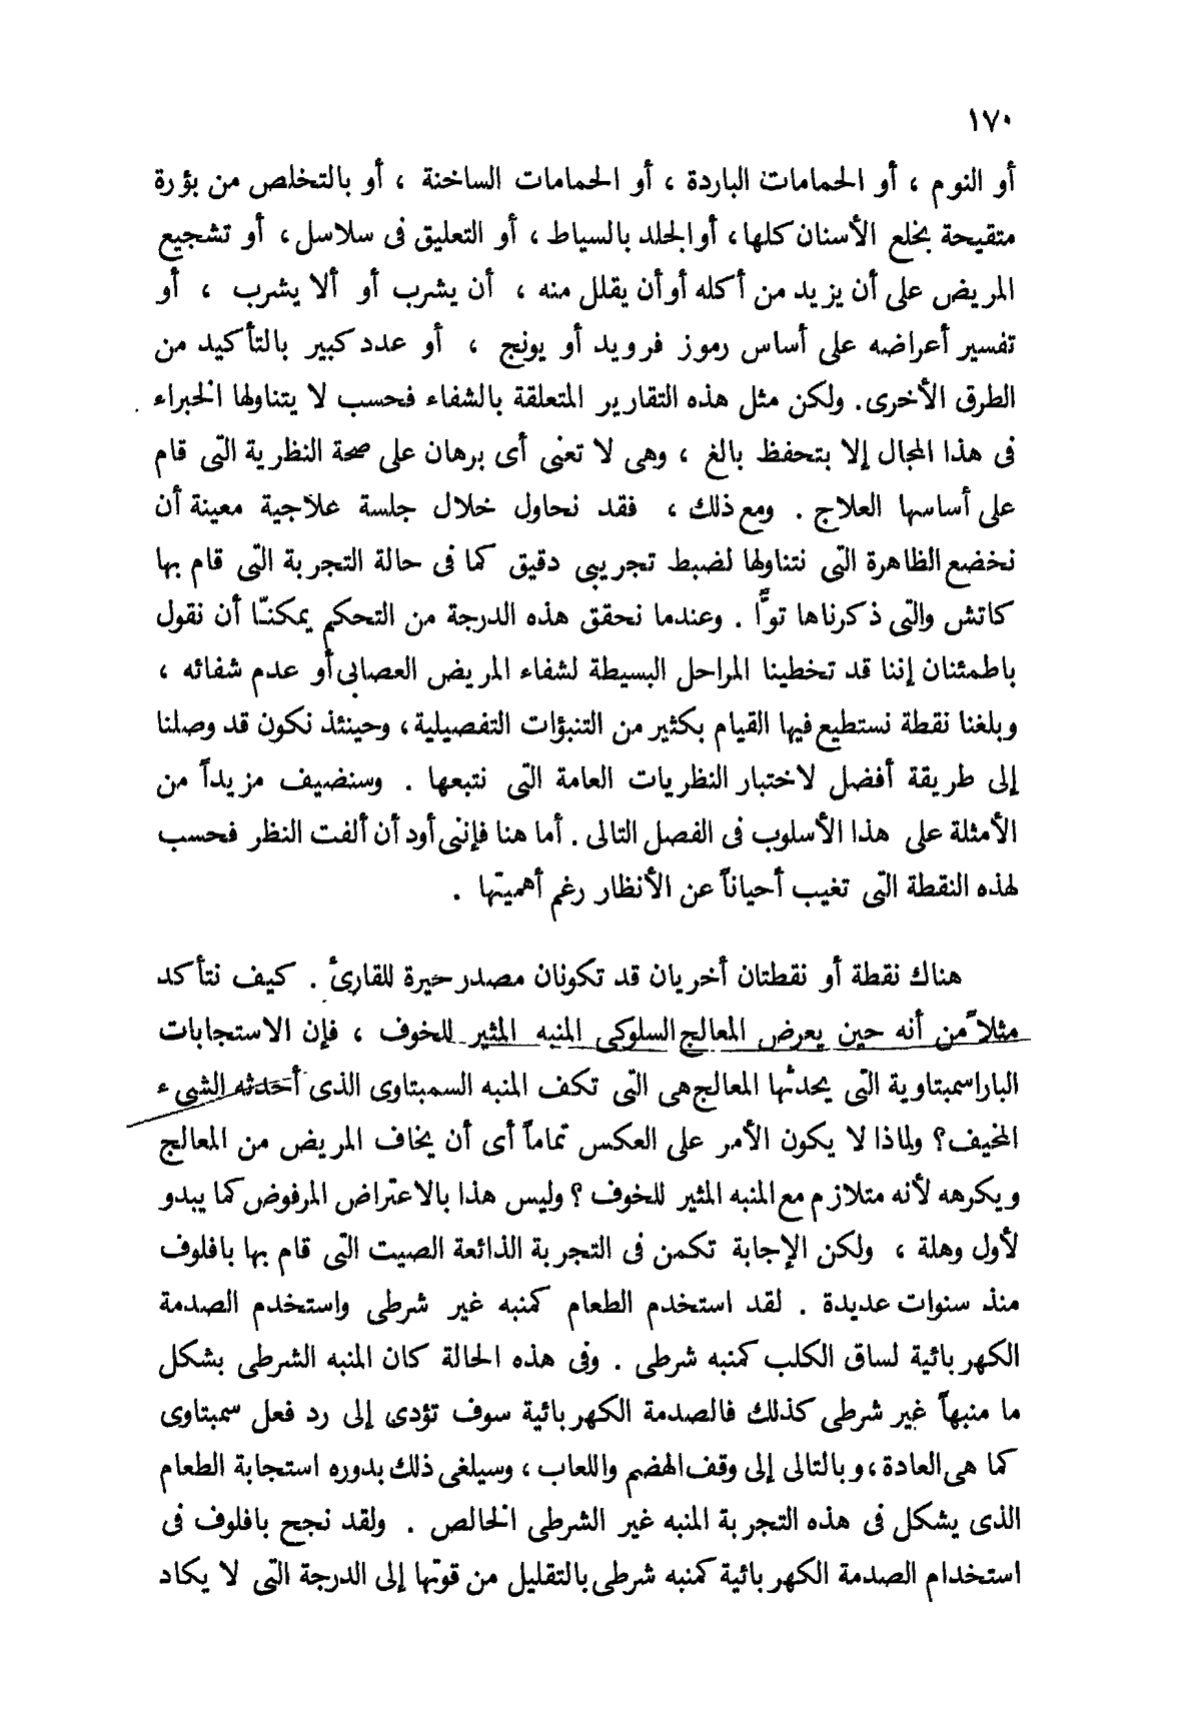 ١٧٠
أو النوم ، أو الحمامات الباردة ، أو الحمامات الساخنة ، أو بالتخلص من بؤرة
متقيحة بخلع الأسنان كلها، أو الجلد بالسياط ، أو التعليق فى سلاسل، أو تشجيع
المريض على أن يزيد من أكله أو أن يقلل منه ، أن يشرب أو ألا يشرب ، أو
تفسير أعراضه على أساس رموز فرويد أو يونج ، أو عدد كبير بالتأكيد من
الطرق الأخرى. ولكن مثل هذه التقارير المتعلقة بالشفاء فحسب لا يتناولها الخبراء
فى هذا المجال إلا بتحفظ بالغ ، وهى لا تعنى أى برهان على صحة النظرية التى قام
على أساسها العلاج . ومع ذلك ، فقد نحاول خلال جلسة علاجية معينة أن
نخضع الظاهرة التى نتناولها لضبط تجريبى دقيق كما فى حالة التجربة التى قام بها
كاتش والتى ذكرناها توًّا . وعندما نحقق هذه الدرجة من التحكم يمكنّا أن نقول
باطمئنان إننا قد تخطينا المراحل البسيطة لشفاء المريض العصابى أو عدم شفائه ،
وبلغنا نقطة نستطيع فيها القيام بكثير من التنبؤات التفصيلية، وحينئذ نكون قد وصلنا
إلى طريقة أفضل لاختبار النظريات العامة التى نتبعها . وسنضيف مزيداً من
الأمثلة على هذا الأسلوب فى الفصل التالى . أما هنا فإننى أود أن ألفت النظر فحسب
لهذه النقطة التى تغيب أحياناً عن الأنظار رغم أهميتها .
هناك نقطة أو نقطتان أخريان قد تكونان مصدر حيرة للقارئ . كيف نتأكد
مثلاً من أنه حين يعرض المعالج السلوكى المنبه المثير للخوف ، فإن الاستجابات
الباراسمبتاوية التى يحدثها المعالج هى التى تكف المنبه السمبتاوى الذى أحدثه الشىء
المخيف؟ ولماذا لا يكون الأمر على العكس تماماً أى أن يخاف المريض من المعالج
ويكرهه لأنه متلازم مع المنبه المثير للخوف ؟ وليس هذا بالاعتراض المرفوض كما يبدو
لأول وهلة ، ولكن الإجابة تكمن فى التجربة الذائعة الصيت التى قام بها بافلوف
منذ سنوات عديدة . لقد استخدم الطعام كمنبه غير شرطى واستخدم الصدمة
الكهربائية لساق الكلب كمنبه شرطى . وفى هذه الحالة كان المنبه الشرطى بشكل
ما منبهاً غير شرطى كذلك فالصدمة الكهربائية سوف تؤدى إلى رد فعل سمبتاوى
كما هى العادة، وبالتالى إلى وقف الهضم واللعاب ، وسيلغى ذلك بدوره استجابة الطعام
الذى يشكل فى هذه التجربة المنبه غير الشرطى الخالص . ولقد نجح بافلوف فى
استخدام الصدمة الكهربائية كمنبه شرطى بالتقليل من قوتها إلى الدرجة التى لا يكاد